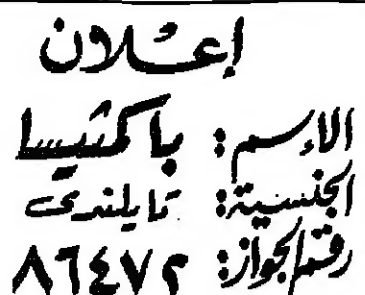 إعلان
الإسم: باكمثيسا
الجنسية: تايلندى
رقم الجواز: ٨٦٤٧٢